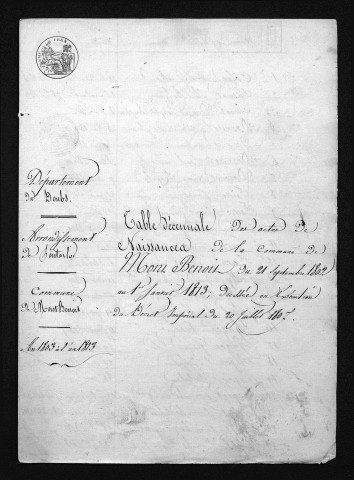 Département
du Doubs.
Arrondissement
de Pontarlier
Commune
de Mont Benoit
An 1803 à l'an 1813
Table décennale des actes de
Naissances de la commune de
Mont Benoit du 21 Septembre 1802
au 1er Janvier 1813, Dressée en Exécution
du Décret Impérial du 20 Juillet 1807.